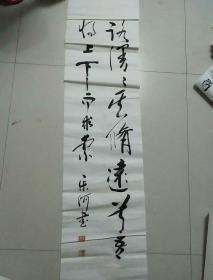 路漫漫其修远兮吾
将上下而求索